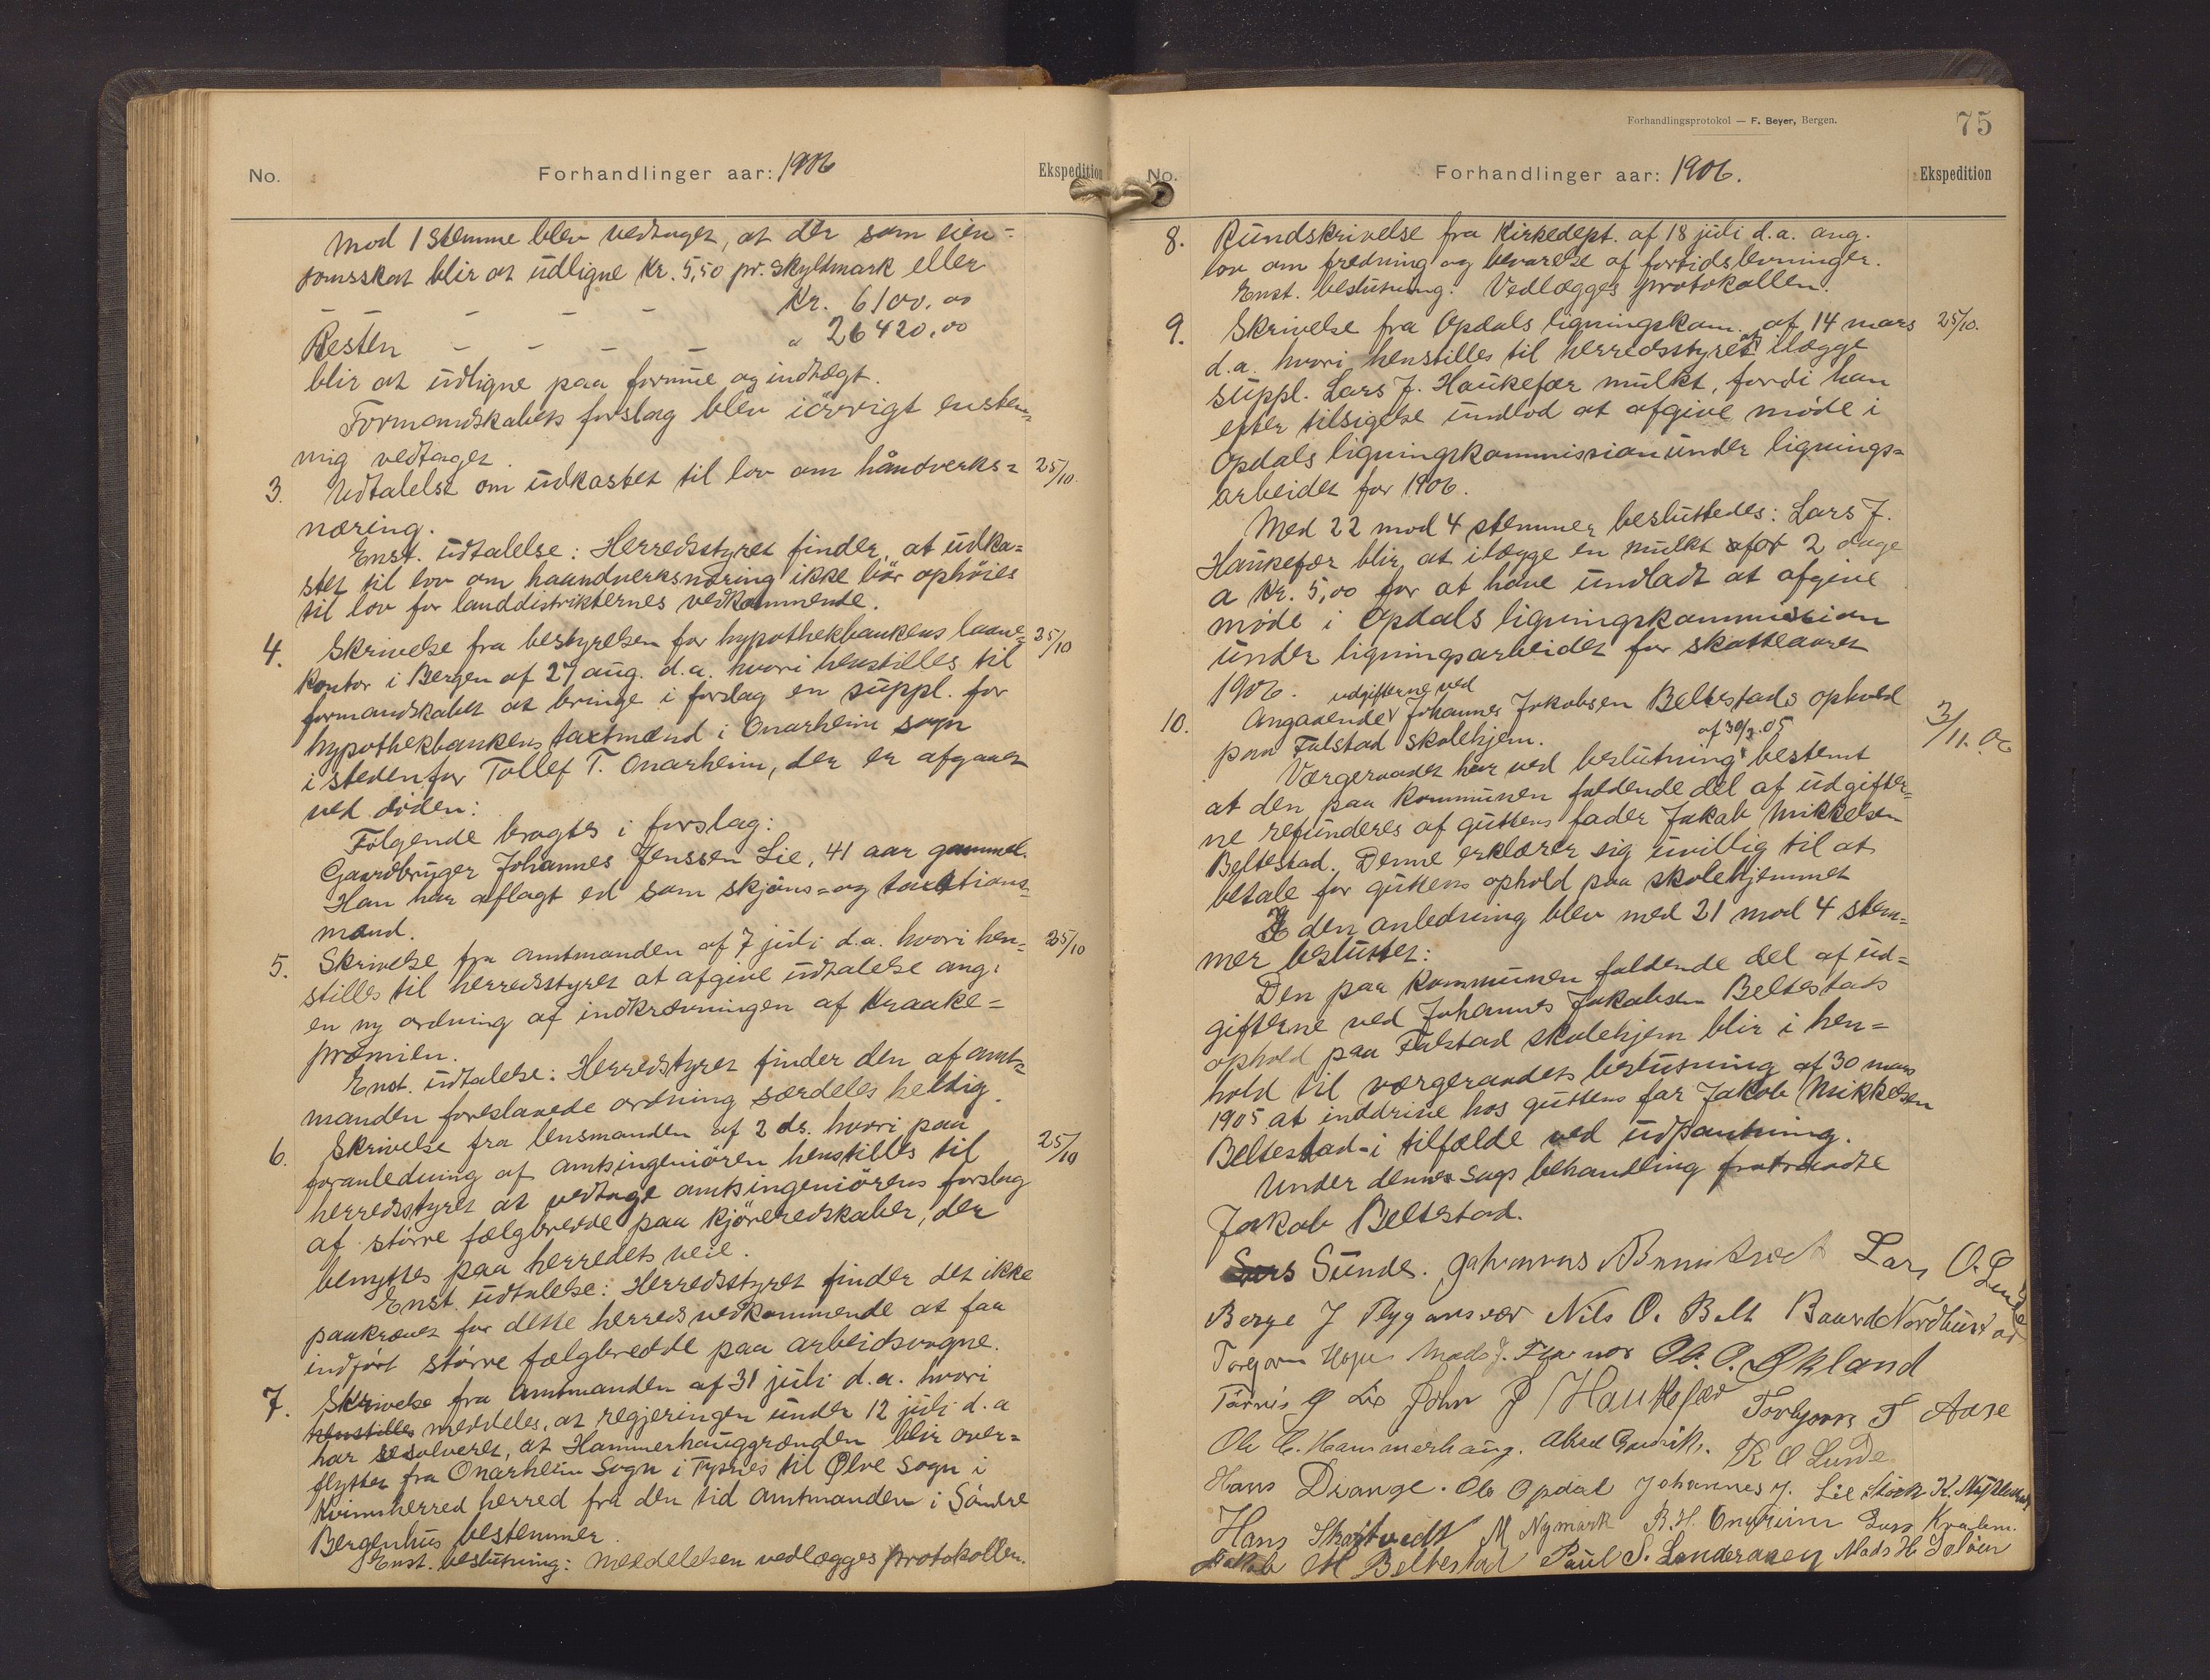 No. Forhandlinger aar: 1906 Ekspedition
mod 1 stemme blev vedtaget, at der som eien-
domsskat blir at udligne kr. 5,50 pr. skyldmark eller
– – – – – Kr. 6100.00
Resten – – – – „ 26420.00
blir at udligne paa formue og indtægt.
Formandskabets forslag blev iövrigt enstem-
mig vedtaget.
3. Udtalelse om udkastet til lov om håndverks- 25/10.
næring.
Enst. udtalelse: Herredsstyret finder, at udka-
stet til lov om haandverksnæring ikke bör ophöies
til lov for landdistrikternes vedkommende.
4. Skrivelse fra bestyrelsen for hypothekbankens laane- 25/10
kontor i Bergen af 29 aug. d.a. hvori henstilles til
formandskabet at bringe i forslag en suppl. for
hypothekbankens taxtmænd i Onarheim sogn
istedenfor Tollef T. Onarheim, der er afgaaet
ved döden:
Fölgende bragtes i forslag:
Gaardbruger Johannes Jenssen Lie, 41 aar gammel.
Han har aflagt ed som skjöns- og taxtations-
mand.
5. Skrivelse fra amtmanden af 7 juli d.a. hvori hen- 25/10
stilles til herredsstyret at afgive udtalelse ang.
en ny ordning af indkrævningen af kraake-
præmien.
Enst. udtalelse: Herredstyret finder den af amt-
manden foreslaaede ordning særdeles heldig.
6. Skrivelse fra lensmanden af 2 ds. hvori paa 25/10
foranledning af amtsingeniören henstilles til
herredsstyret at vedtage amtsingeniörens forslag
af större fælgbredde paa kjöreredskaber, der
benyttes paa herredets veie.
Enst. udtalelse: Herredsstyret finder det ikke
paakrævet for dette herreds vedkommende at faa
indfört större fælgbredde paa arbeidsvogne.
7. Skrivelse fra Amtmanden af 31 juli d.a. hvori
henstilles meddeles, at regjeringen under 12 juli d.a
har resolveret, at Hammerhauggrænden blir over-
flyttet fra Onarheim Sogn i Tysnes til Ølve Sogn i
Kvinnherred herred fra den tid amtmanden i Söndre
Bergenhus bestemmer.
Enst. beslutning: Meddelelsen vedlægges protokollen.
Forhandlingsprotokol — F. Beyer, Bergen. 75
No. Forhandlinger aar: 1906. Ekspedition
8. Rundskrivelse fra Kirkedept. af 18 juli d.a. ang.
lov om fredning og bevarelse af fortidslevninger.
Enst. beslutning: Vedlægges protokollen.
9. Skrivelse fra Opdals ligningskom. af 14 mars 25/10.
d.a. hvori henstilles til herredsstyret at ilægge
suppl. Lars J. Haukefær mulkt, fordi han
efter tilsigelse undlod at afgive möde i
Opdals ligningskommission under lignings-
arbeidet for 1906.
Med 22 mod 4 stemmer besluttedes: Lars J.
Haukefær blir at ilægge en mulkt for 2 dage
a kr. 5,00 for at have undladt at afgive
möde i Opdals ligningskommission
under ligningsarbeidet for skatteaaret
1906.
udgifterne ved
10. Angaaende Johannes Jakobsen Beltestads ophold 3/11.06
paa Falstad skolehjem.
af 30/3.05
Værgeraadet har ved beslutning bestemt
at den paa kommunen faldende del af udgifter-
ne refunderes af guttens fader Jakob Mikkelsen
Beltestad. Denne erklærer sig uvillig til at
betale for guttens ophold paa skolehjemmet
I den anledning blev med 21 mod 4 stem-
mer besluttet:
Den paa kommunen faldende del af ud-
gifterne ved Johannes Jakobsen Beltestads
ophold paa Falstad skolehjem blir i hen-
hold til værgeraadets beslutning af 30 mars
1905 at inddrive hos guttens far Jakob Mikkelsen
Beltestad - i tilfælde ved udpantning.
Under denne sags behandling fratraadte
Jakob Beltestad.
Sunde. Johannes Lars O. Lunde
Børge J Flygansvær Nils O. Belt Baard Nordhus
Mads J. O. Økland
G Lie John J Haukefær Torbjørn T Aase
Ole C. Hammerhaug. K O Lunde
Hans Drange. Ole Opdal Johannes J. Lie
Hans M Nymark Onarheim Lars
Jakob M Beltestad Paul S. Mads H